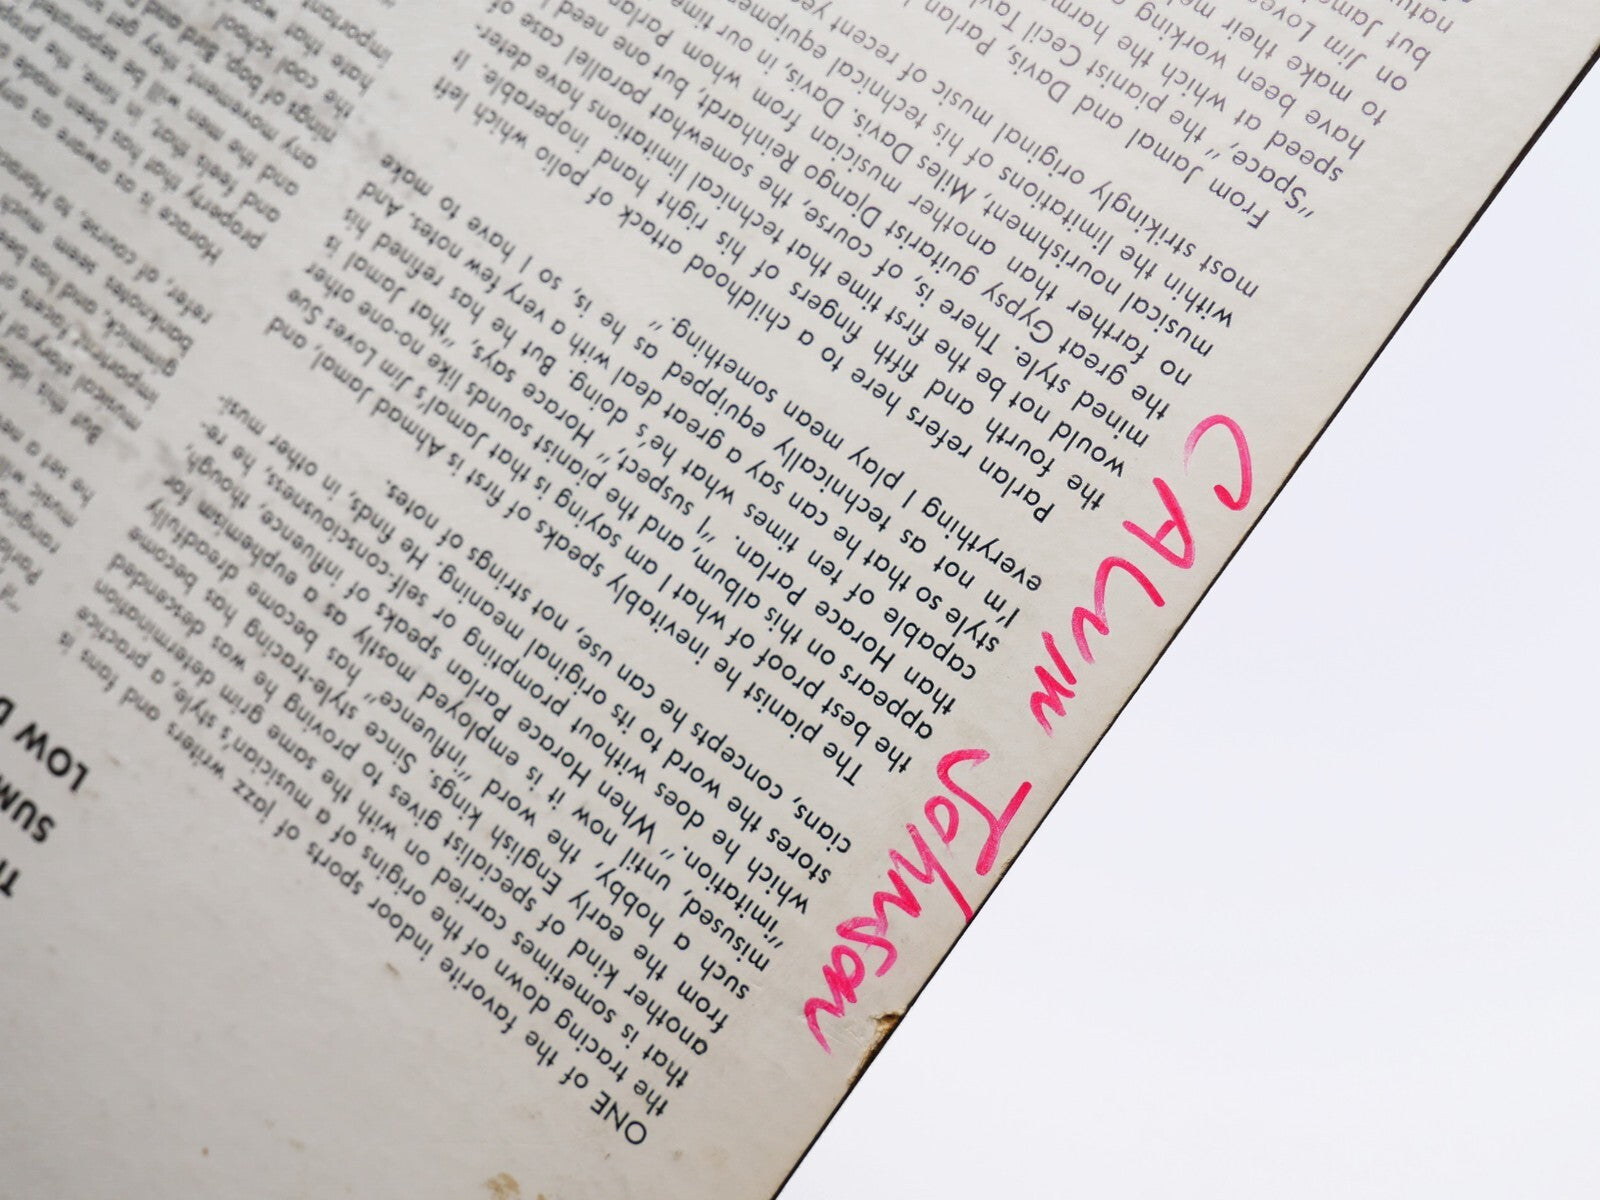 CALVIN JOHNSON
SUM
LOW D
ONE of the favorite indoor sports of jazz writers and fans is
the tracing down of the origins of a musician's style, a practice
that is sometimes carried on with the same grim determination
another kind of specialist gives to proving he was descended
from the early English kings. Since style-tracing has become
such a hobby, the word "influence" has become dreadfully
misused, until now it is employed mostly as a euphemism for
"imitation." When Horace Parlan speaks of influence, though,
which he does without prompting or self-consciousness, he re-
stores the word to its original meaning. He finds, in other musi-
cians, concepts he can use, not strings of notes.
The pianist he inevitably speaks of first is Ahmad Jamal, and
the best proof of what I am saying is that Jamal's Jim Loves Sue
appears on this album, and the pianist sounds like no-one other
than Horace Parlan. "I suspect," Horace says, "that Jamal is
capable of ten times what he's doing. But he has refined his
style so that he can say a great deal with a very few notes. And
I'm not as technically equipped as he is, so I have to make
everything I play mean something."
Parlan refers here to a childhood attack of polio which left
the fourth and fifth fingers of his right hand inoperable. It
would not be the first time that technical limitations have deter-
mined style. There is, of course, the somewhat parallel case of
the great Gypsy guitarist Django Reinhardt, but one need
no farther than another musician from whom Parlan
musical nourishment, Miles Davis. Davis, in our time
within the limitations of his technical equipment
most strikingly original music of recent
From Jamal and Davis, Parlan
"Space," the pianist Cecil
speed at which the
have been working
to make their
on Jim Loves
but
he set a
music will
ranging
But this
musical story of
importer facets
gimmick, and has
banknotes seem much
refer, of course, to
Horace is as aware as
property that has been made
and feels that, in time, the
and the men will be separated
any movement, they
nings of bop, Bird and
the cool school
hate that was
important